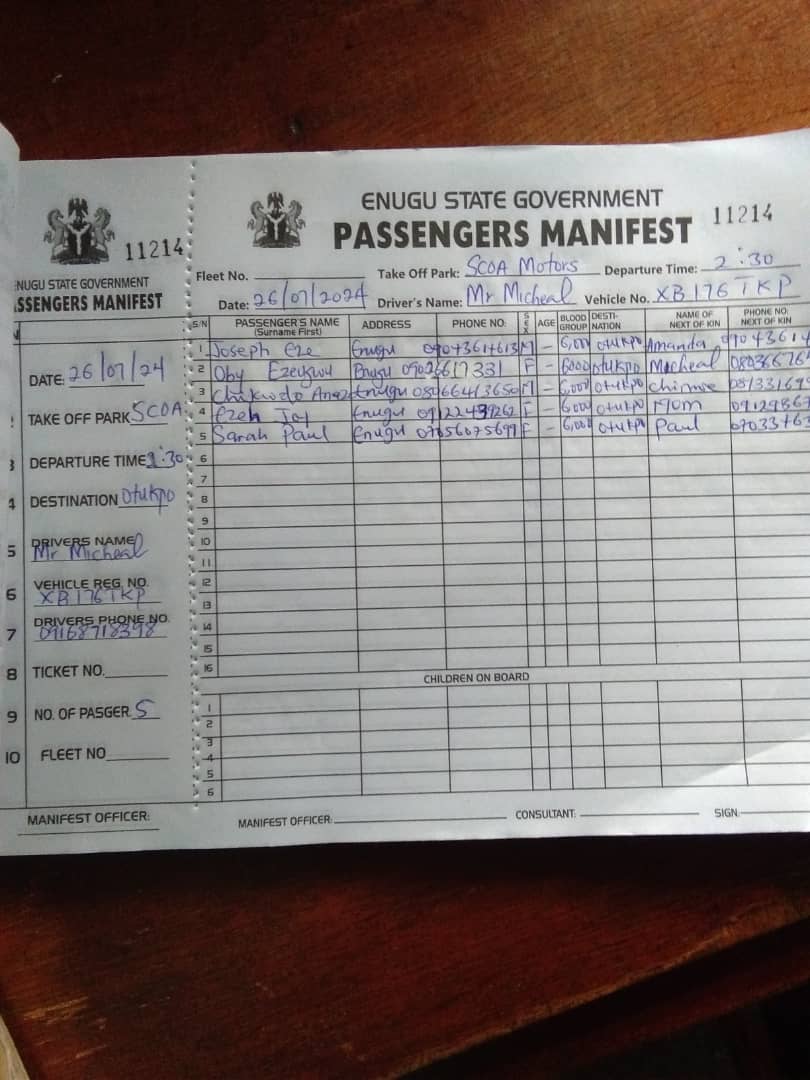 11214
NUGU STATE GOVERNMENT
SSENGERS MANIFEST
DATE: 26/07/24
TAKE OFF PARK SCOA
3 DEPARTURE TIME 2:30
4 DESTINATION Otukpo
5 DRIVERS NAME
Mr Micheal
6 VEHICLE REG. NO.
XB176TKP
7 DRIVERS PHONE NO.
09168718398
8 TICKET NO.
9 NO. OF PASGER. 5
10 FLEET NO
MANIFEST OFFICER:
ENUGU STATE GOVERNMENT
PASSENGERS MANIFEST 11214
Fleet No. Take Off Park: SCOA Motors Departure Time: 2:30
Date: 26/07/2024 Driver's Name: Mr Micheal Vehicle No. XB176TKP
S/N PASSENGER'S NAME (Surname First) ADDRESS PHONE NO. SEX AGE BLOOD GROUP DESTI-NATION NAME OF NEXT OF KIN PHONE NO. NEXT OF KIN
1 Joseph Eze Enugu 09043614613 M - 6,000 otukpo Amanda 09043614
2 Oby Enugu 09026617331 F - 6000 otukpo Micheal
3 Enugu 08066413650 M - 6,000 otukpo
4 Ezeh Joy Enugu F - 6,000 otukpo Mom
5 Sarah Paul Enugu 07056075699 F - 6,000 otukpo Paul
6
7
8
9
10
11
12
13
14
15
16
CHILDREN ON BOARD
1
2
3
4
5
6
MANIFEST OFFICER: CONSULTANT: SIGN.